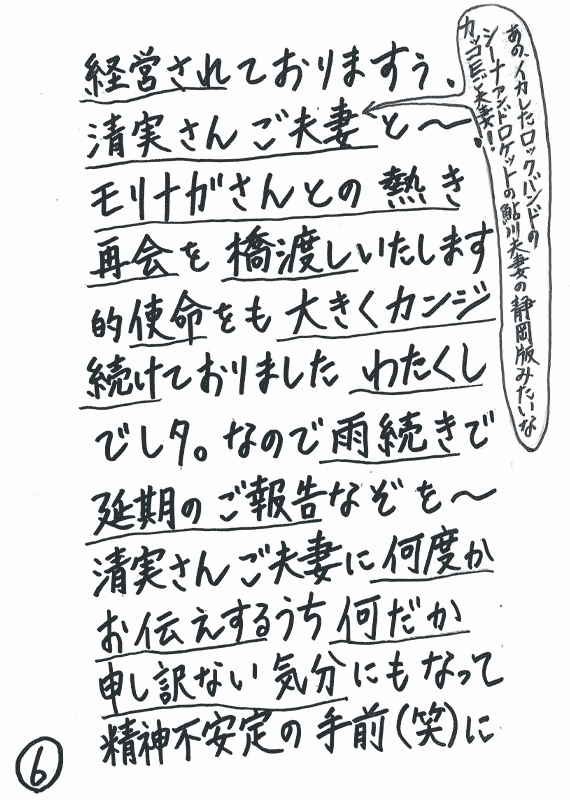 経営されておりますぅ、
清実さんご夫妻と〜
モリナガさんとの熱き
再会を橋渡しいたします
的使命をも大きくカンジ
続けておりましたわたくし
でしタ。なので雨続きで
延期のご報告なぞを〜
清実さんご夫妻に何度か
お伝えするうち何だか
申し訳ない気分にもなって
精神不安定の手前(笑)に
あの、イカしたロックバンドの
シーナアンドロケットの鮎川夫妻の静岡版みたいな
カッコE夫妻!!
⑥